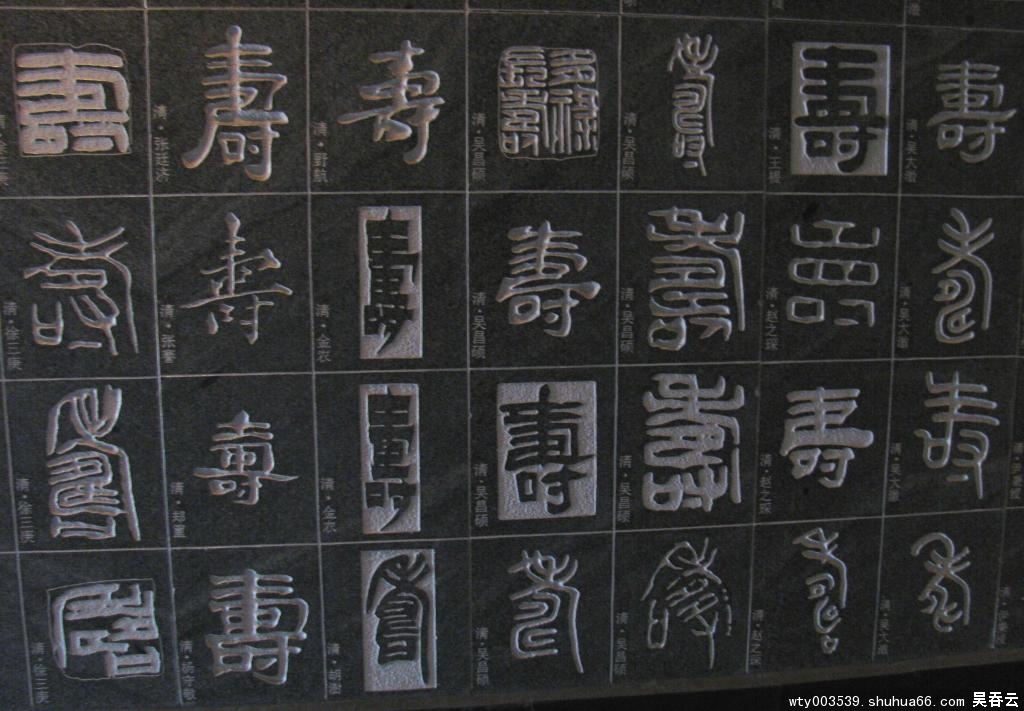 壽 清·徐三庚
壽 清·张廷济
壽 清·野航
清·吴昌硕
壽 清·吴昌硕
壽 清·王禔
壽 清·吴大澂
壽 清·徐三庚
壽 清·张謇
壽 清·金农
壽 清·吴昌硕
壽 清·吴昌硕
壽 清·赵之琛
壽 清·吴大澂
壽 清·徐三庚
壽 清·郑簠
壽 清·金农
壽 清·吴昌硕
壽 清·吴昌硕
壽 清·赵之琛
壽 清·吴大澂
壽 清·徐三庚
壽 清·杨守敬
壽 清·胡澍
壽 清·吴昌硕
壽 清·吴昌硕
壽 清·赵之琛
壽 清·吴大澂
wty003539.shuhua66.com 吴吞云